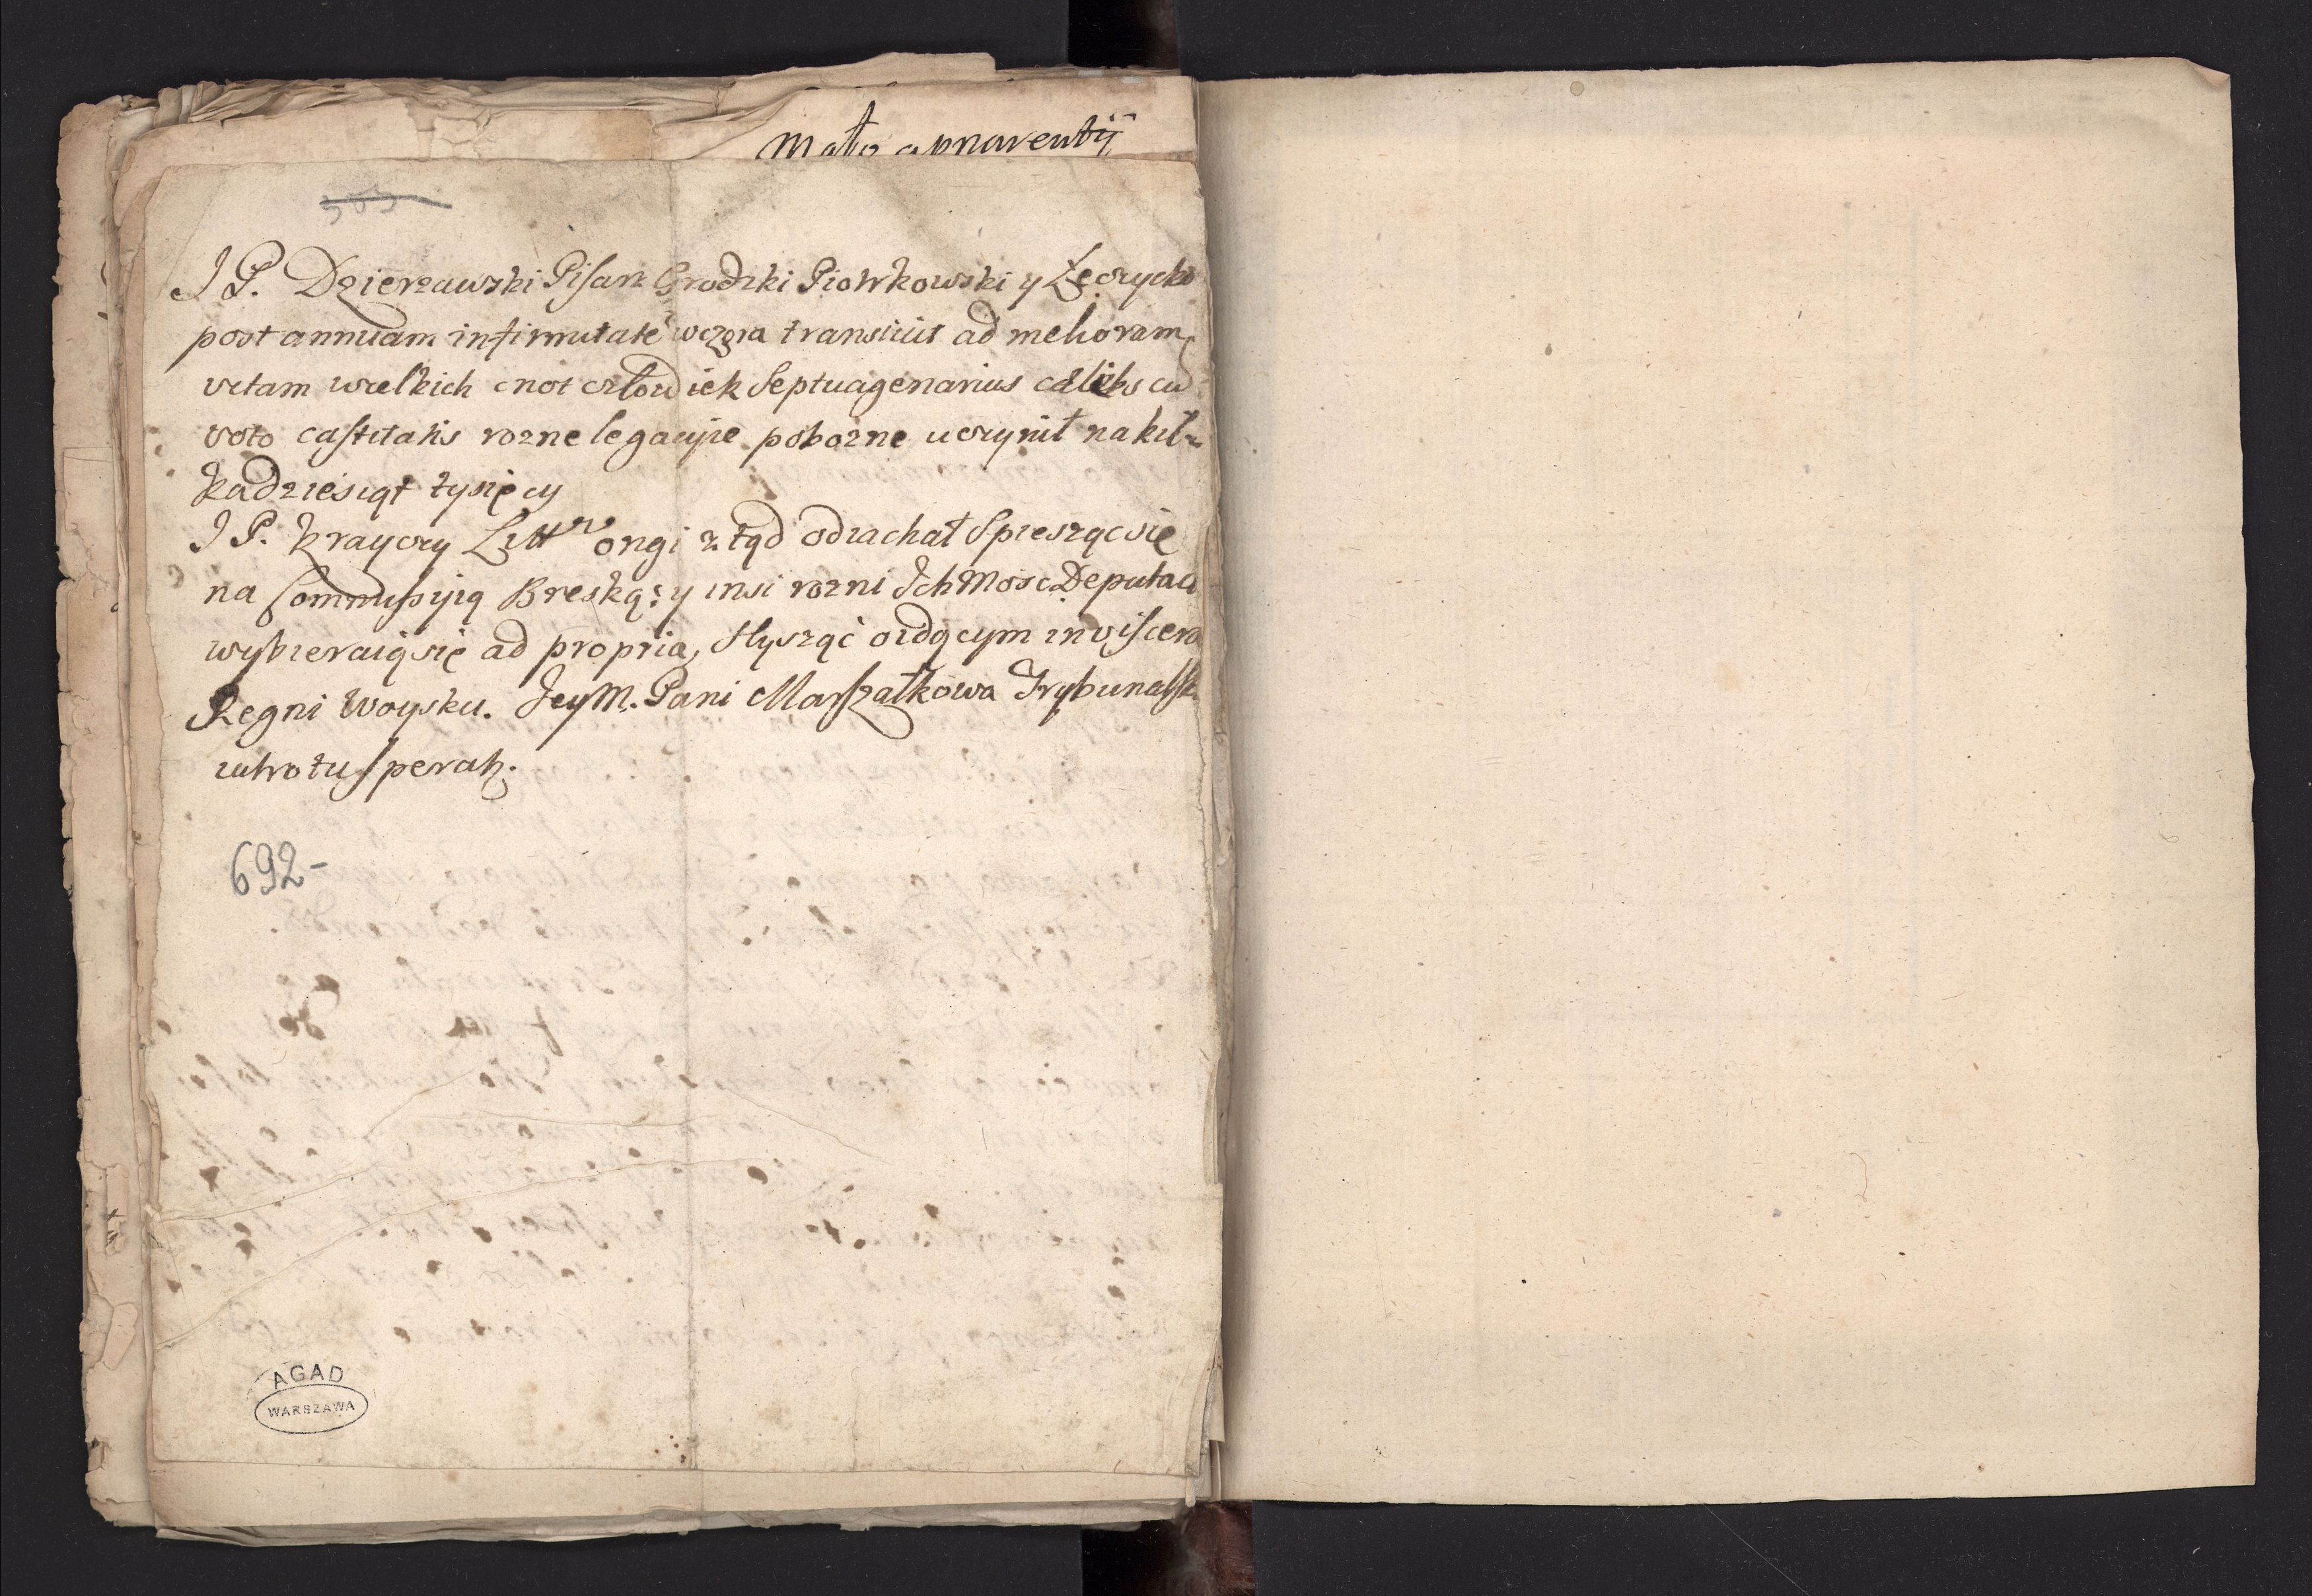 Mało apparentij
JP. Dzierzawski Pisarz Grodzki Piotrkowski y Łęczycki
post annuam infirmitatē wczora transiuit ad melioram
vitam wielkich cnot człowiek Septuagenarius cælebs cū
voto castitatis rozne legacyie pobozne uczynił na kil-
kadziesiąt tysięcy
JP. Krayczy Litt ongi ztąd odiachał Spiesząc się
na Commissyią Breską: y insi rozni IchMosc Deputaci
wybieraią się ad propria, słysząc o idącym in viscera
Regni Woysku. JeyM. Pani Marszałkowa Trybunalska
iutro tu speratr.
692-
AGAD
WARSZAWA